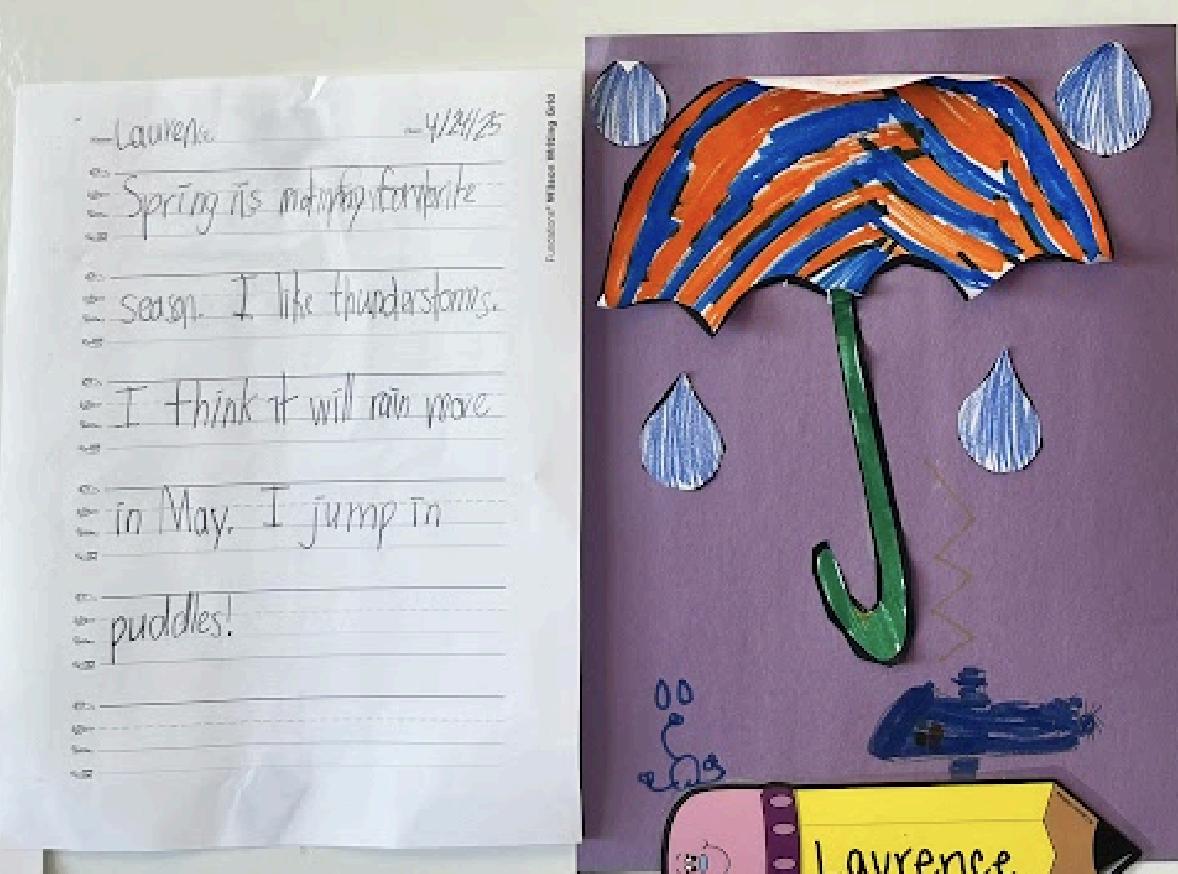 Laurence
4/24/25
Spring is not my favorite
season. I like thunderstorms.
I think it will rain more
in May. I jump in
puddles!
Fundations® Wilson Writing Grid
Laurence